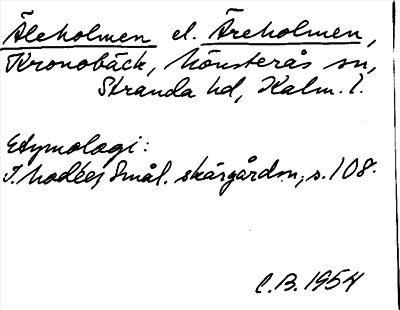 Äleholmen el. Äreholmen,
Kronobäck, Mönsterås sn,
Stranda hd, Kalm. l.
Etymologi:
I. Modéer, Smål. skärgårdsn., s. 108.
C.B. 1954